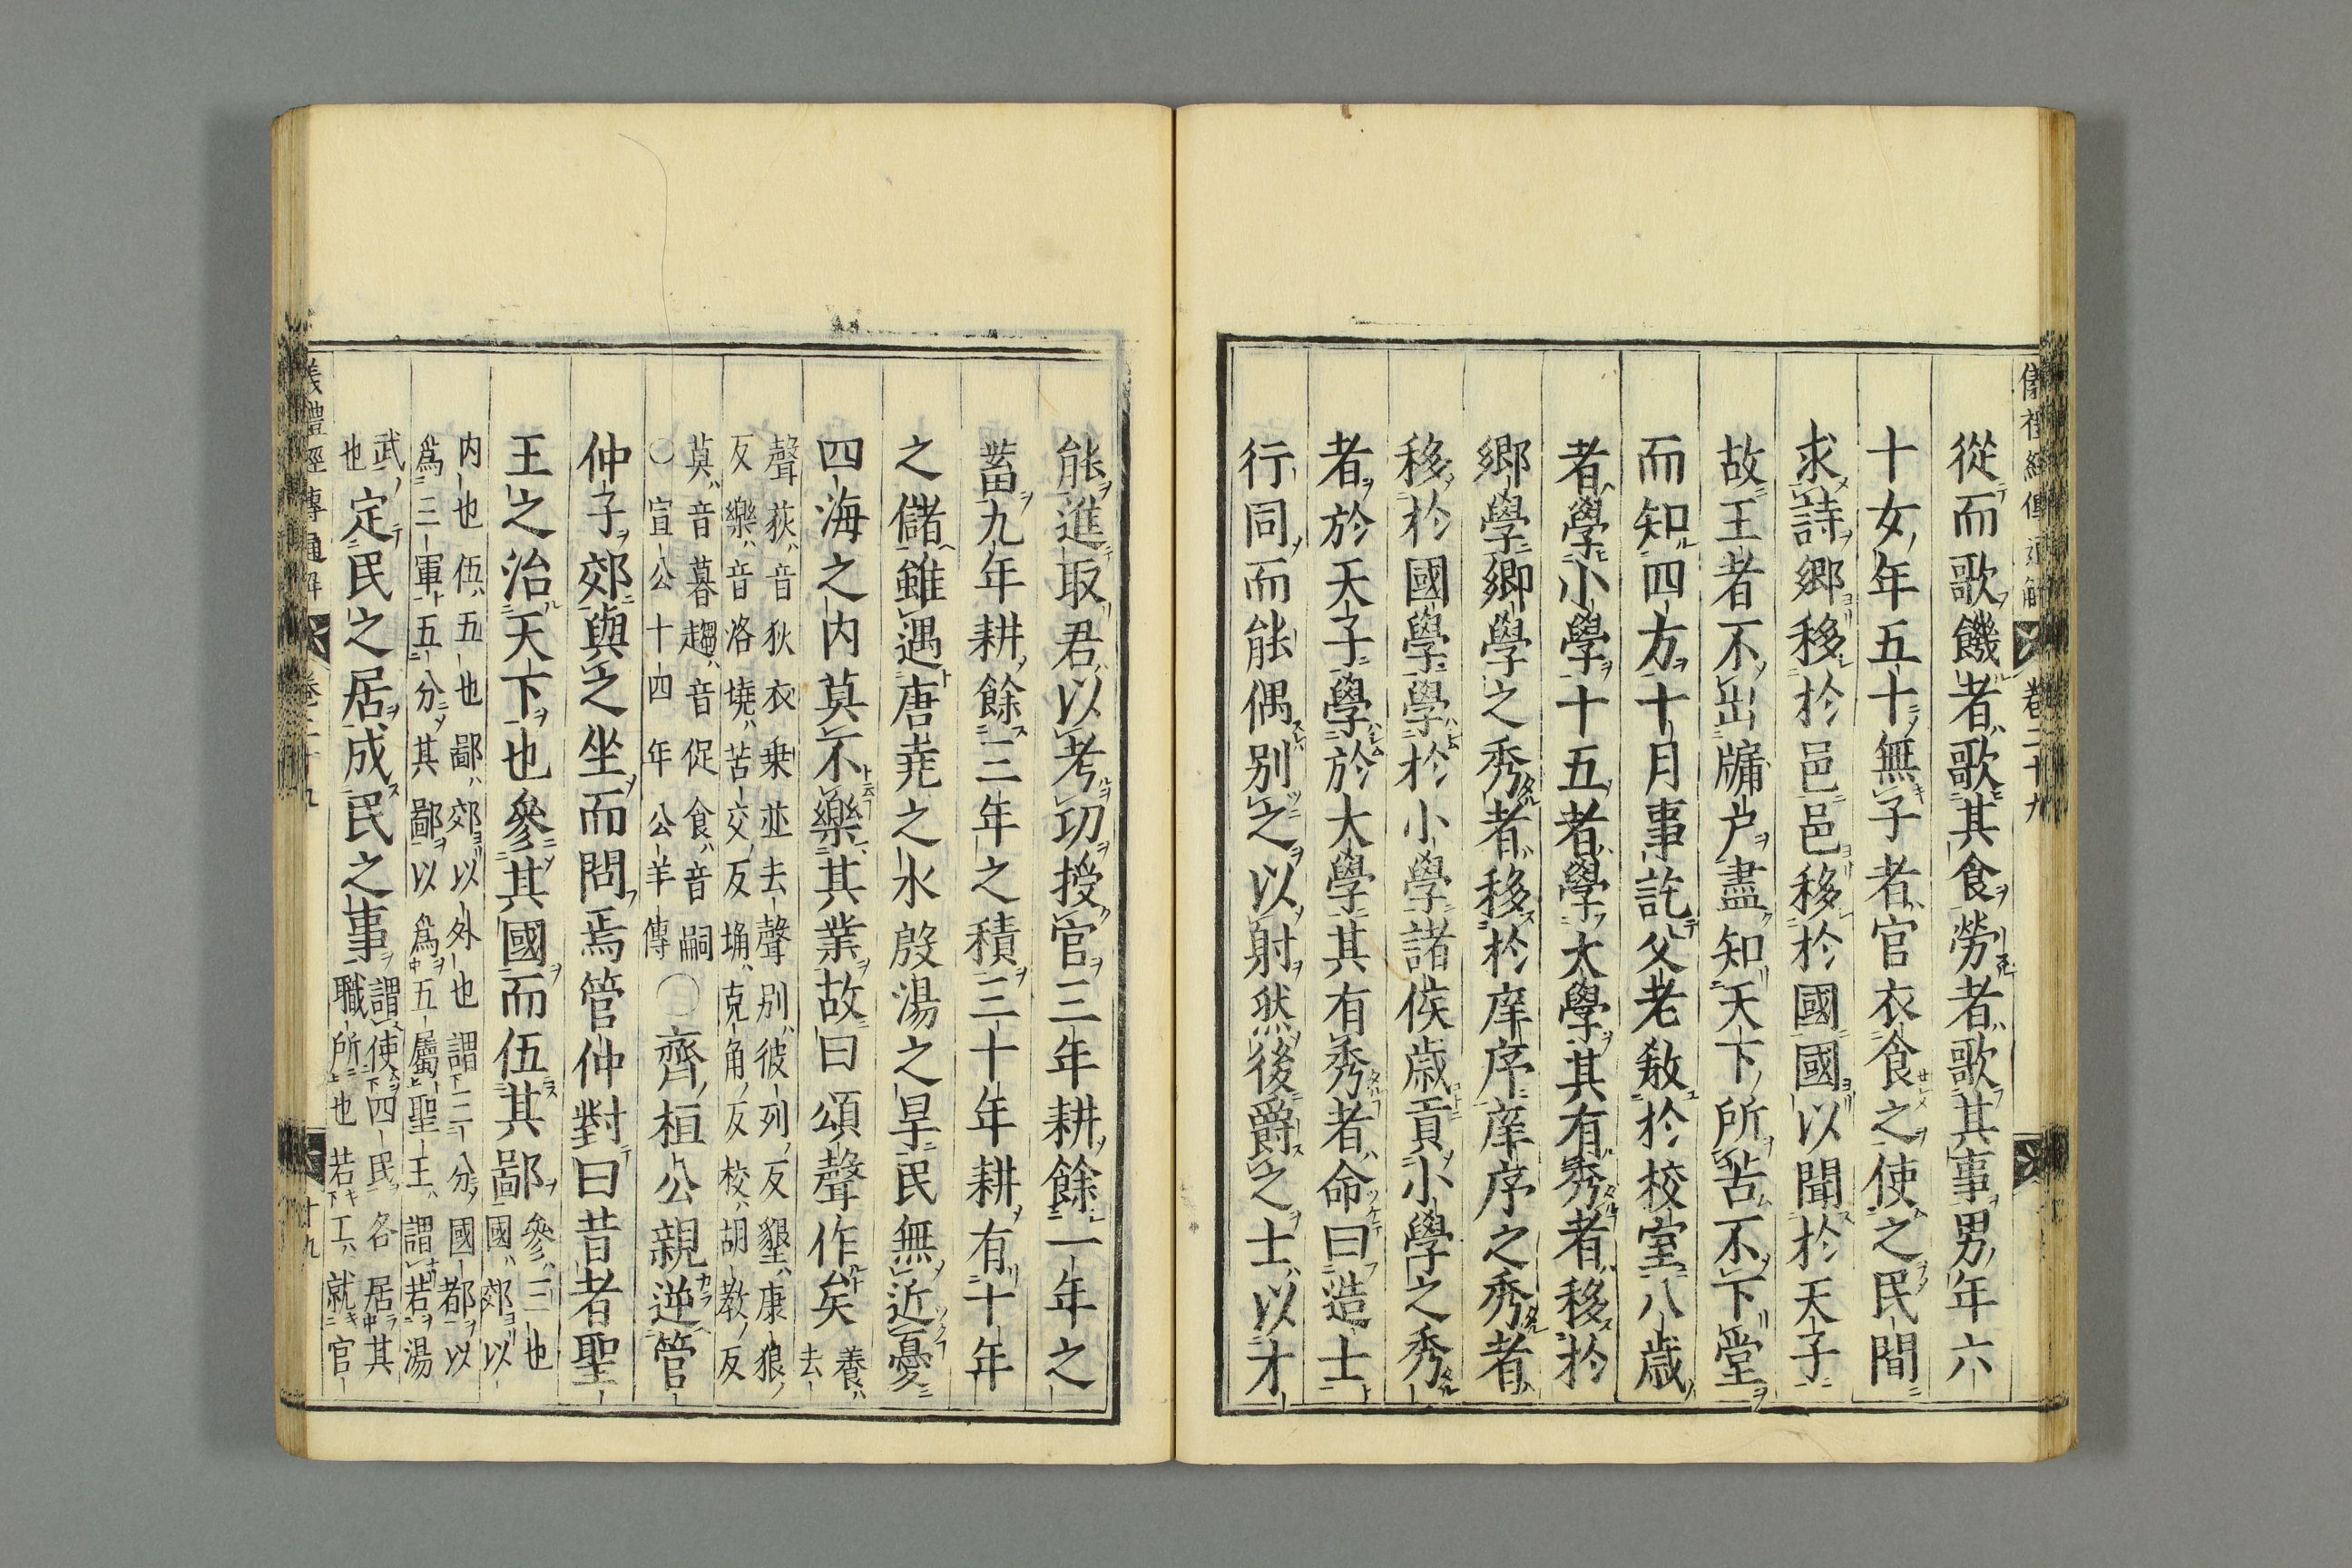 儀禮經傳通解 卷二十九
從而歌饑者歌其食勞者歌其事男年六
十女年五十無子者官衣食之使之民間
求詩鄉移於邑邑移於國國以聞於天子
故王者不出牖户盡知天下所苦不下堂
而知四方十月事訖父老敎於校室八歳
者學小學十五者學大學其有秀者移於
鄉學鄉學之秀者移於庠序庠序之秀者
移於國學學於小學諸侯歳貢小學之秀
者於天子學於大學其有秀者命曰造士
行同而能偶别之以射然後爵之士以才
能進取君以考功授官三年耕餘一年之
蓄九年耕餘三年之積三十年耕有十年
之儲雖遇唐尭之水殷湯之旱民無近憂
四海之内莫不樂其業故曰頌聲作矣養去
聲荻音狄衣乗並去聲别彼列反墾康狼
反樂音洛墝苦交反埆克角反校胡教反
莫音暮趨音促食音嗣
○宣公十四年公羊傳
○齊桓公親逆管
仲于郊與之坐而問焉管仲對曰昔者聖
王之治天下也參其國而伍其鄙參三也國郊以
内也伍五也鄙郊以外也謂三分國都以
爲三軍五分其鄙以爲五屬聖王謂若湯
武也定民之居成民之事謂使四民各居其職所也若工就官
儀禮經傳通解 卷二十九 十九